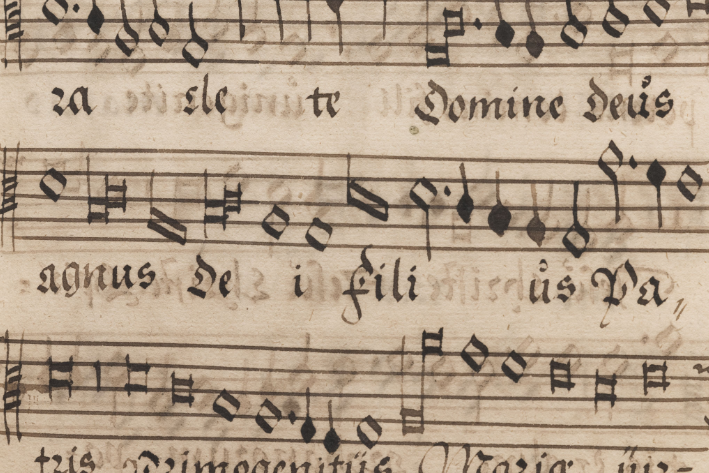 ra cle te Domine deůs
agnus De i Fili ůs Pa,,
tris Primogenitůs Mariæ ůir-